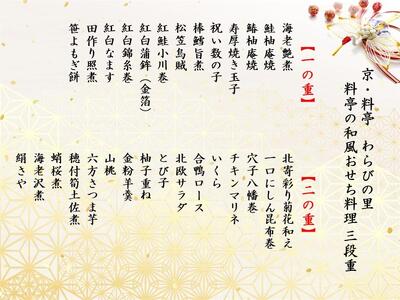 京・料亭 わらびの里
料亭の和風おせち料理 三段重
【一の重】
海老艶煮
鮭柚庵焼
鰆柚庵焼
寿厚焼き玉子
祝い数の子
棒鱈旨煮
松笠烏賊
紅鮭小川巻
紅白蒲鉾(金箔)
紅白錦糸巻
紅白なます
田作り照煮
笹よもぎ餅
【二の重】
北寄彩り菊花和え
一口にしん昆布巻
穴子八幡巻
チキンマリネ
いくら
合鴨ロース
北欧サラダ
とび子
柚子重ね
金粉羊羹
山桃
六方さつま芋
穂付筍土佐煮
蛸桜煮
海老沢煮
絹さや